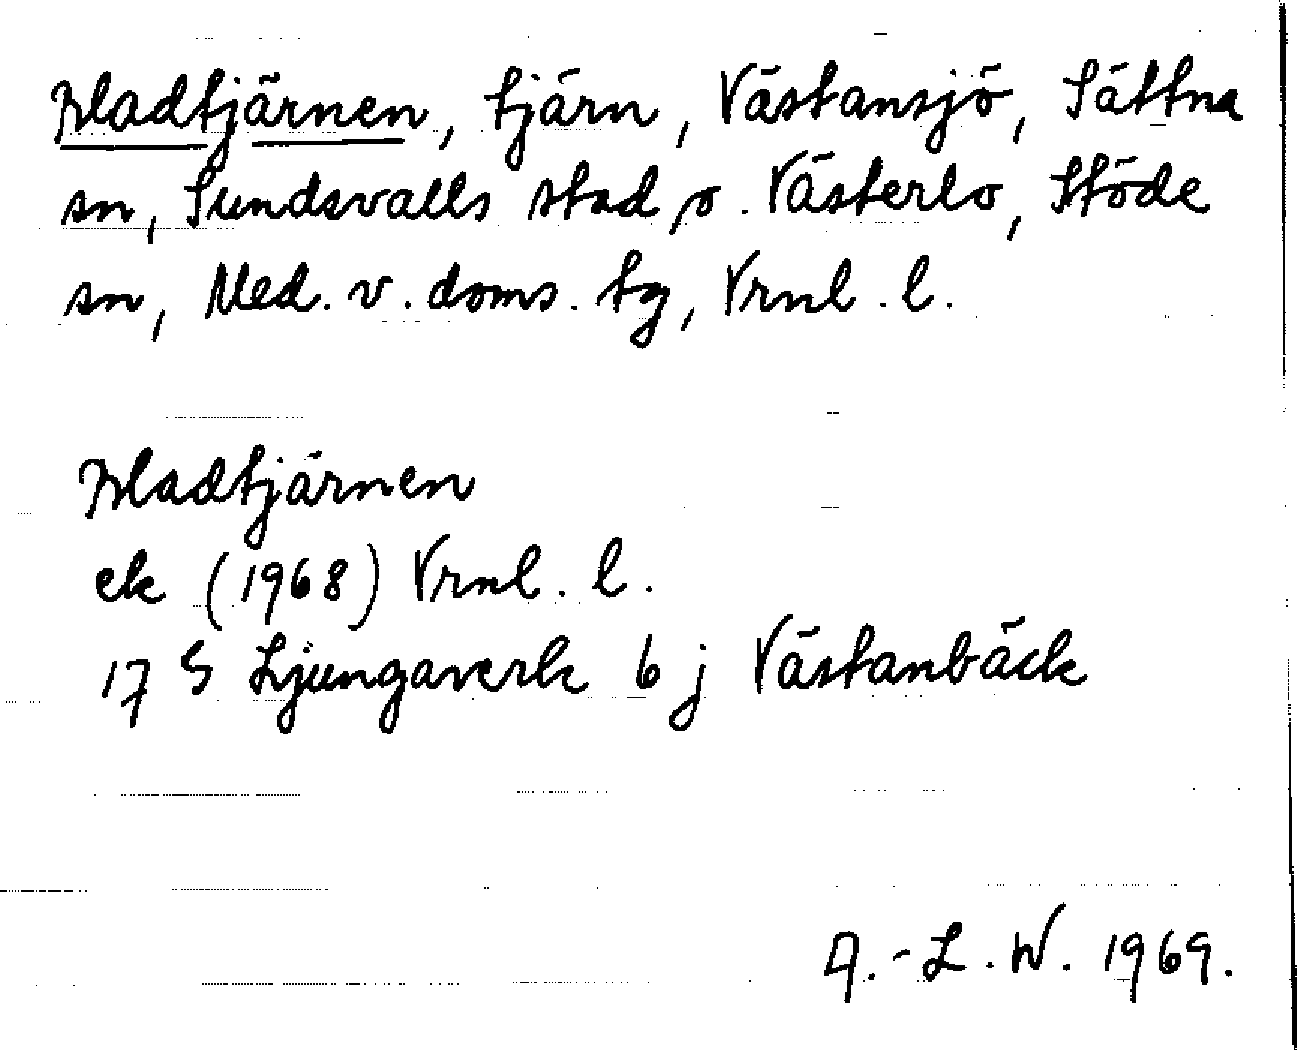 Bladtjärnen, tjärn, Västansjö, Sättna
sn, Sundsvalls stad, o. Västerlo, Stöde
sn, Med. v. doms. tg, Vrnl. l.
Bladtjärnen
ek (1968) Vrnl. l.
17 G Ljungaverk 6 j Västanbäck
A.-L. W. 1969.